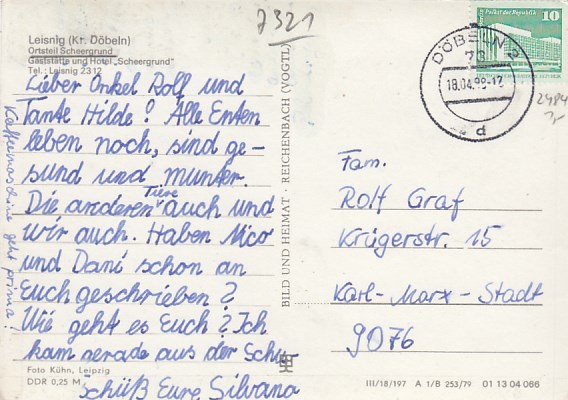 7321
Leisnig (Kr. Döbeln)
Ortsteil Scheergrund
Gaststätte und Hotel „Scheergrund"
Tel.: Leisnig 2312
Lieber Onkel Rolf und
Tante Hilde! Alle Enten
leben noch, sind ge-
sund und munter.
Die anderen Tiere auch und
wir auch. Haben Nico
und Dani schon an
Euch geschrieben?
Wie geht es Euch? Ich
kam gerade aus der Schule
Tschüß Eure Silvana
Kaffeemaschine geht prima!
Foto Kühn, Leipzig
DDR 0,25 M
BILD UND HEIMAT · REICHENBACH (VOGTL)
Palast der Republik
10
DÖBELN 2
73
18.04.88-12
d
2484
Fam.
Rolf Graf
Krügerstr. 15
Karl-Marx-Stadt
9076
III/18/197 A 1/B 253/79 01 13 04 066